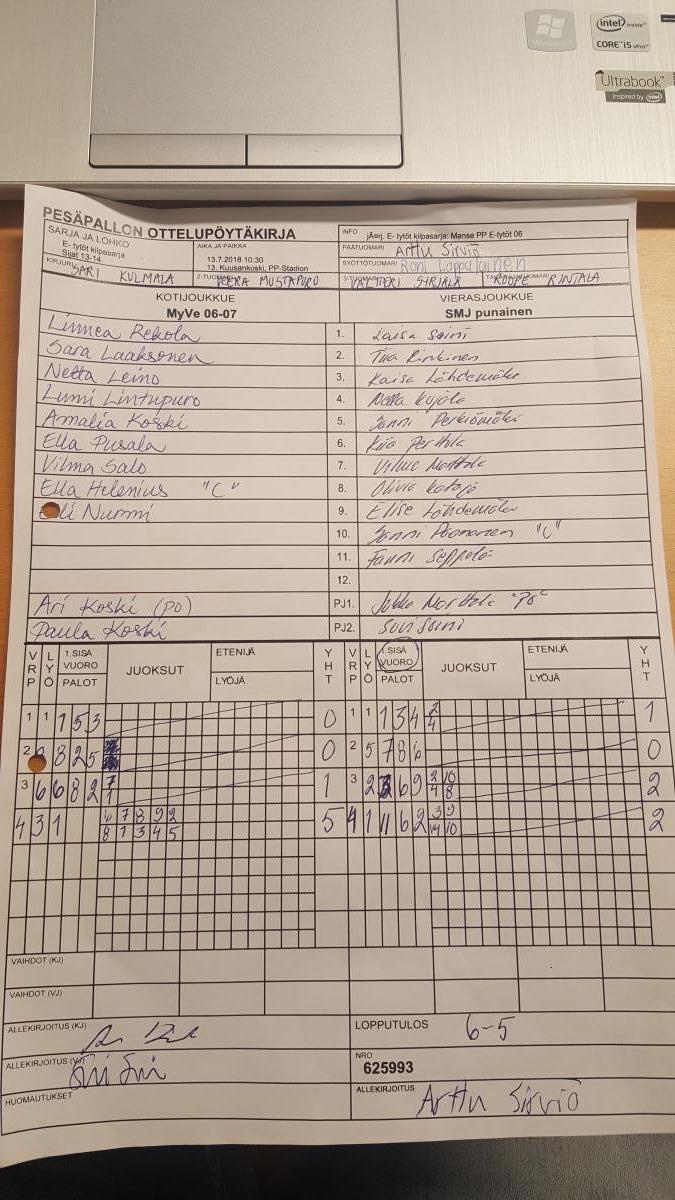 Windows 7
intel inside™
CORE i5 vPro™
Ultrabook™
Inspired by intel
PESÄPALLON OTTELUPÖYTÄKIRJA
SARJA JA LOHKO
E- tytöt kilpasarja
Sijat 13-14
AIKA JA PAIKKA
13.7.2018 10:30
13. Kuusankoski, PP-Stadion
INFO jÄ¤rj. E- tytöt kilpasarja: Manse PP E-tytöt 06
PÄÄTUOMARI Arttu Sirviö
SYÖTTÖTUOMARI Roni Lappalainen
KIRJURI SARI KULMALA
VEERA MUSTAPURO
VALTTERI SIRJALA
ROOPE RINTALA
KOTIJOUKKUE VIERASJOUKKUE
MyVe 06-07 SMJ punainen
Linnea Rekola 1. Kaisa Soini
Sara Laaksonen 2. Tiia Rinkinen
Netta Leino 3. Kaisa Lähdemäki
Lumi Lintupuro 4. Nella Kujala
Amalia Koski 5. Janni Perkiömäki
Ella Pusala 6. Kiia Perttola
Vilma Salo 7. Vilma Marttala
Ella Helenius "C" 8. Olivia Kataja
Nurmi 9. Elise Lähdemäki
10. Janni "C"
11. Fanni Seppälä
12.
Ari Koski (PO) PJ1. Jukka Marttala "PO"
Paula Koski PJ2. Suvi Soini
VRP LYÖ 1.SISÄ VUORO PALOT JUOKSUT ETENIJÄ LYÖJÄ YHT VRP LYÖ 1.SISÄ VUORO PALOT JUOKSUT ETENIJÄ LYÖJÄ YHT
1 1 1 5 3 0 1 1 1 3 4 2 4 1
2 8 2 5 0 2 5 7 8 6 0
3 6 6 8 2 7 1 1 3 2 6 9 2 10 4 8 2
4 3 1 6 7 8 9 2 8 1 3 4 5 5 4 1 11 6 2 3 9 10 2
VAIHDOT (KJ)
VAIHDOT (VJ)
ALLEKIRJOITUS (KJ)
LOPPUTULOS 6-5
ALLEKIRJOITUS (VJ)
NRO
625993
HUOMAUTUKSET
ALLEKIRJOITUS Arttu Sirviö